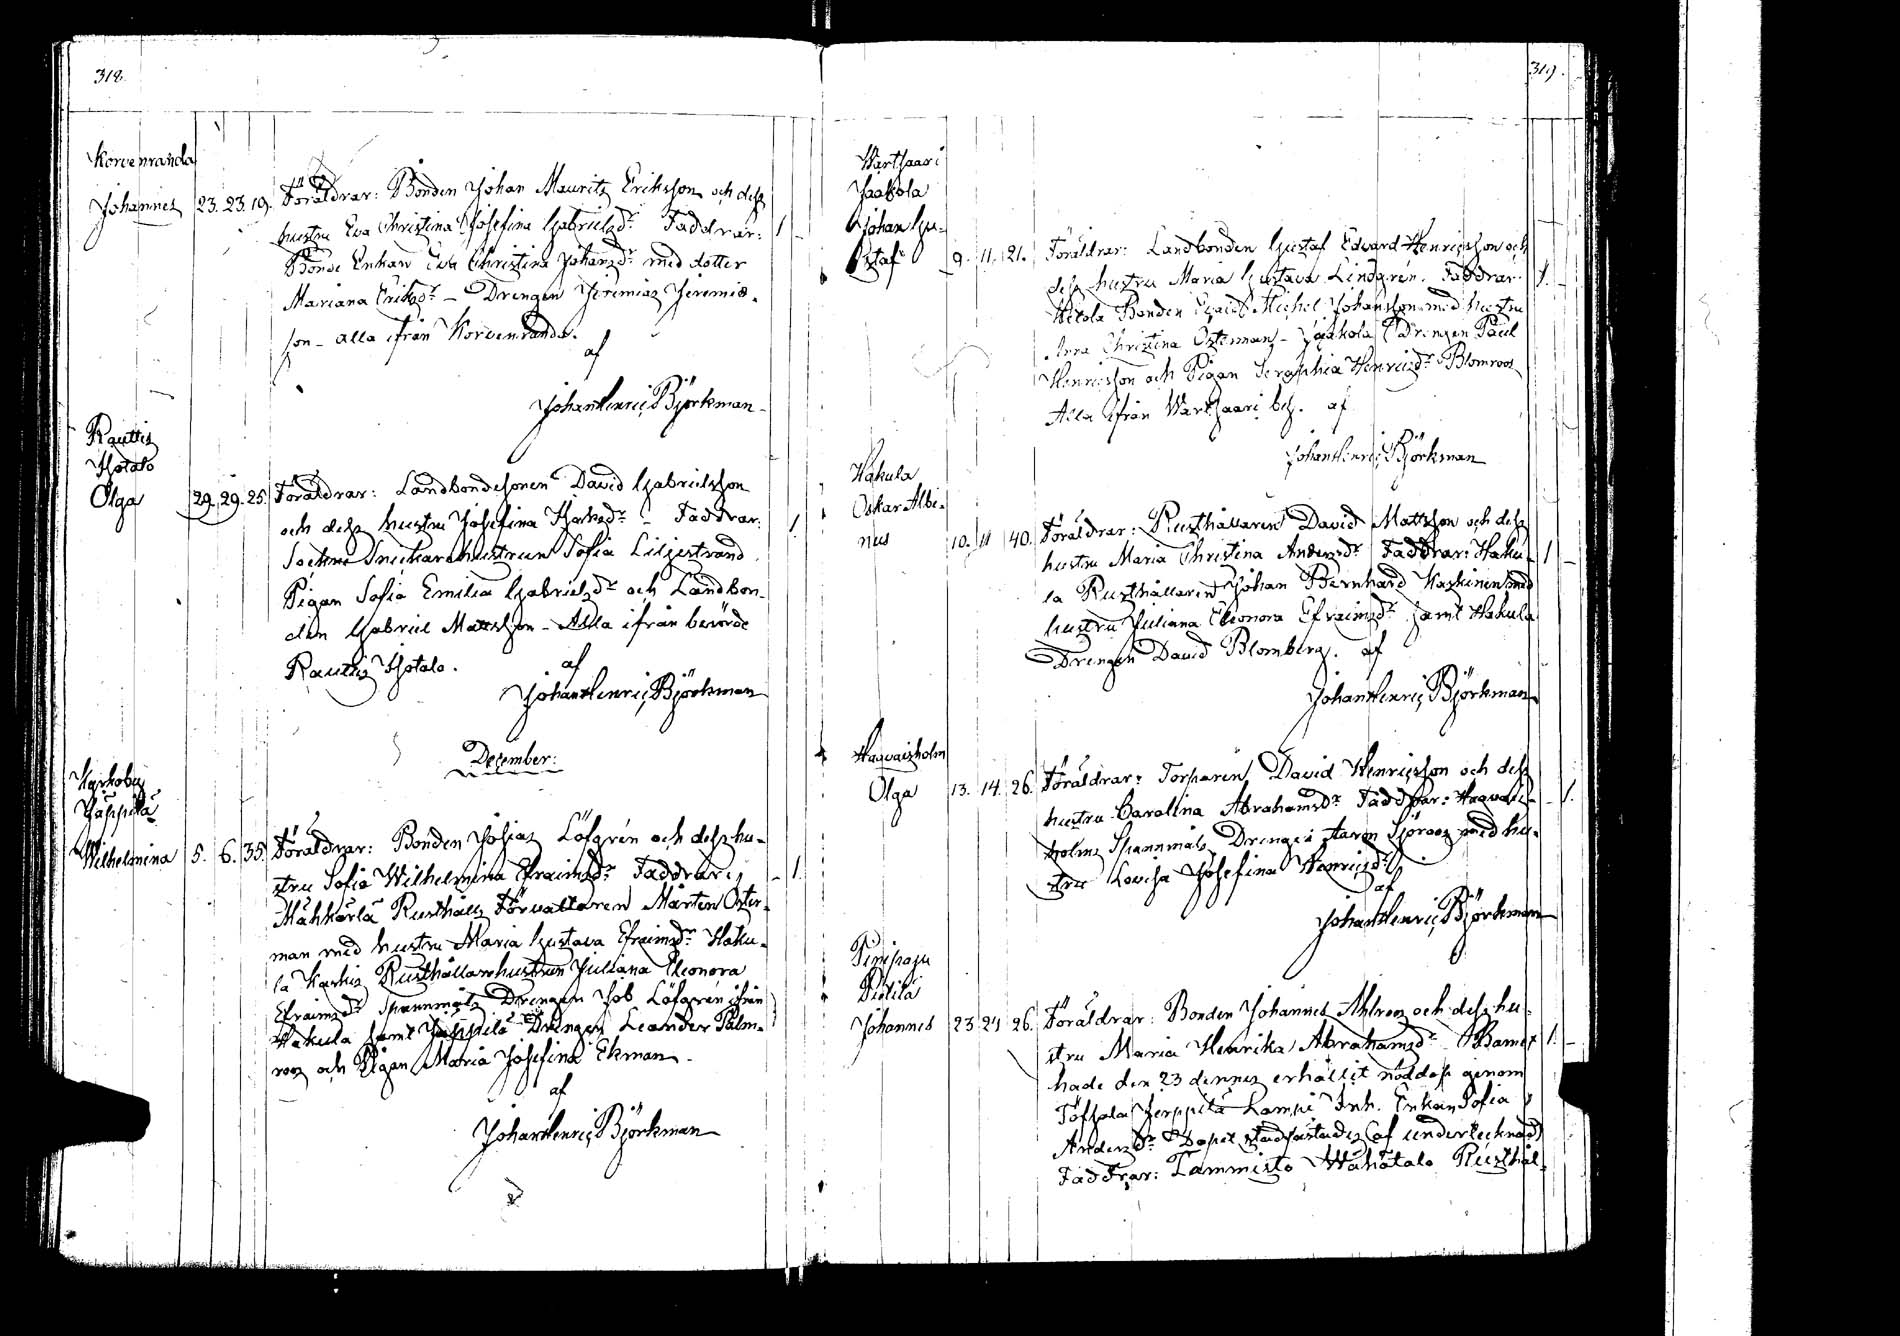 318.
Korvenranda
Johannes 23. 23. 19. Föräldrar: Bonden Johan Mauritz Eriksson och dess
hustru Eva Christina Josefina Gabrielsdr. Faddrar: 1 -
Bonde Enkan Eva Christina Johansdr med dotter
Mariana Eriksdr - Drengen Jeremias Jeremias-
son - alla ifrån Korvenranda.
af
Johan Henric Björkman
Rauttis
Ojotalo
Olga 29. 29. 25. Föräldrar: Landbondesonen David Gabrielsson
och dess hustru Josefina Isaksdr - Faddrar: 1.
Sockne Snickarehustrun Sofia Liljestrand
Pigan Sofia Emilia Gabrielsdr och Landbon-
den Gabriel Mattsson - Alla ifrån berörde
Rauttis Ojotalo.
af
Johan Henric Björkman
December:
Karkoby
Jäppilä
Wilhelmina 5. 6. 35. Föräldrar: Bonden Josias Löfgrén och dess hu-
stru Sofia Wilhelmina Efraimsdr. Faddrar: - 1.
Mähkärlä Rusthålls Förvaltaren Mårten Öster-
man med hustru Maria Gustava Efraimsdr Haku-
la Karkis Rusthållarehustrun Juliana Eleonora
Efraimsdr Spannmåls Drengen Job Löfgrén ifrån
Hakula samt Jäppilä Drengen Leander Palm-
roos och Pigan Maria Josefina Ekman.
af
Johan Henric Björkman
319.
Wartsaari
Jaakola
Johan Gu-
staf 9. 11. 21. Föräldrar: Landbonden Gustaf Edvard Henricsson och
dess hustru Maria Gustava Lindgrén. Faddrar: 1. -
Bonden Esaias Michel Johansson med hustru
Anna Christina Österman - Jaakola Drengen Paul
Henricsson och Pigan Seraphia Henricsdr Blomroos
Alla ifrån Wartsaari by. af
Johan Henric Björkman
Hakula
Oskar Albi-
nus 10. 11 40. Föräldrar: Rusthållaren David Mattsson och dess
hustru Maria Christina Andersdr Faddrar: Haku- 1 -
la Rusthållaren Johan Bernhard Kaskinen med
hustru Juliana Eleonora Efraimsdr samt Hakula
Drengen David Blomberg. af
Johan Henric Björkman
Haavaisholm
Olga 13. 14. 26. Föräldrar: Torparen David Henricsson och dess
hustru Carolina Abrahamsdr Faddrar: Haavais- - 1.
holms Spannmåls Drengen Aaron Sjöroos med hu-
stru Lovisa Josefina Henricsdr
af
Johan Henric Björkman
Pinipaju
Pietilä
Johannes 23 24 26. Föräldrar: Bonden Johannes Ahlroos och dess hu-
stru Maria Henrika Abrahamsdr - Barnet 1. -
hade den 23 dennes erhållit nöddop genom
Töfsala Jerppilä Lampi Inh. Enkan Sofia
Andersdr Dopet stadfästades af undertecknad
Faddrar: Tammisto Wähätalo Rusthål-